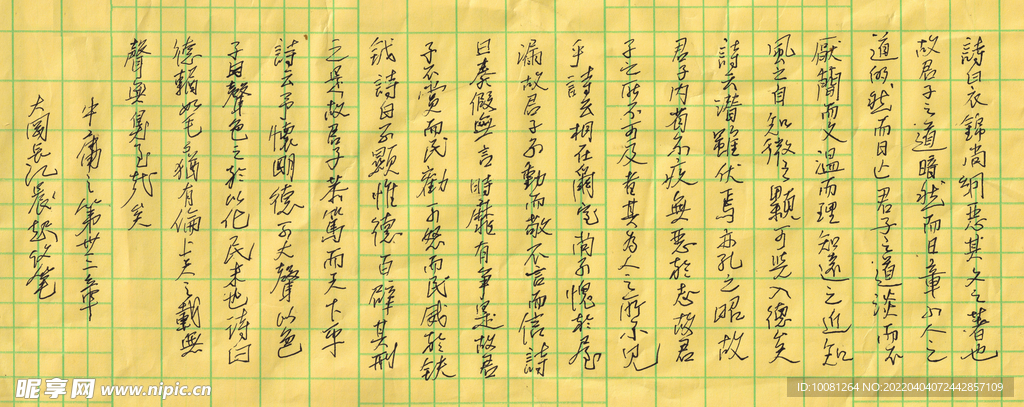 詩曰衣錦尚絅惡其文之著也
故君子之道暗然而日章小人之
道的然而日亡君子之道淡而不
厭簡而文溫而理知遠之近知
風之自知微之顯可與入德矣
詩云潛雖伏焉亦孔之昭故
君子內省不疚無惡於志故君
子之所不可及者其為人之所不見
乎詩云相在爾室尚不愧於屋
漏故君子不動而敬不言而信詩
曰奏假無言時靡有爭是故君
子不賞而民勸不怒而民威於鈇
鉞詩曰不顯惟德百辟其刑
之是故君子恭篤而天下平
詩云予懷明德不大聲以色
子曰聲色之於以化民末也詩曰
德輶如毛毛猶有倫上天之載無
聲無臭至哉矣
中庸之第卅三章
大國長江晨起試筆
昵享网 www.nipic.cn
ID:10081264 NO:20220404072442857109